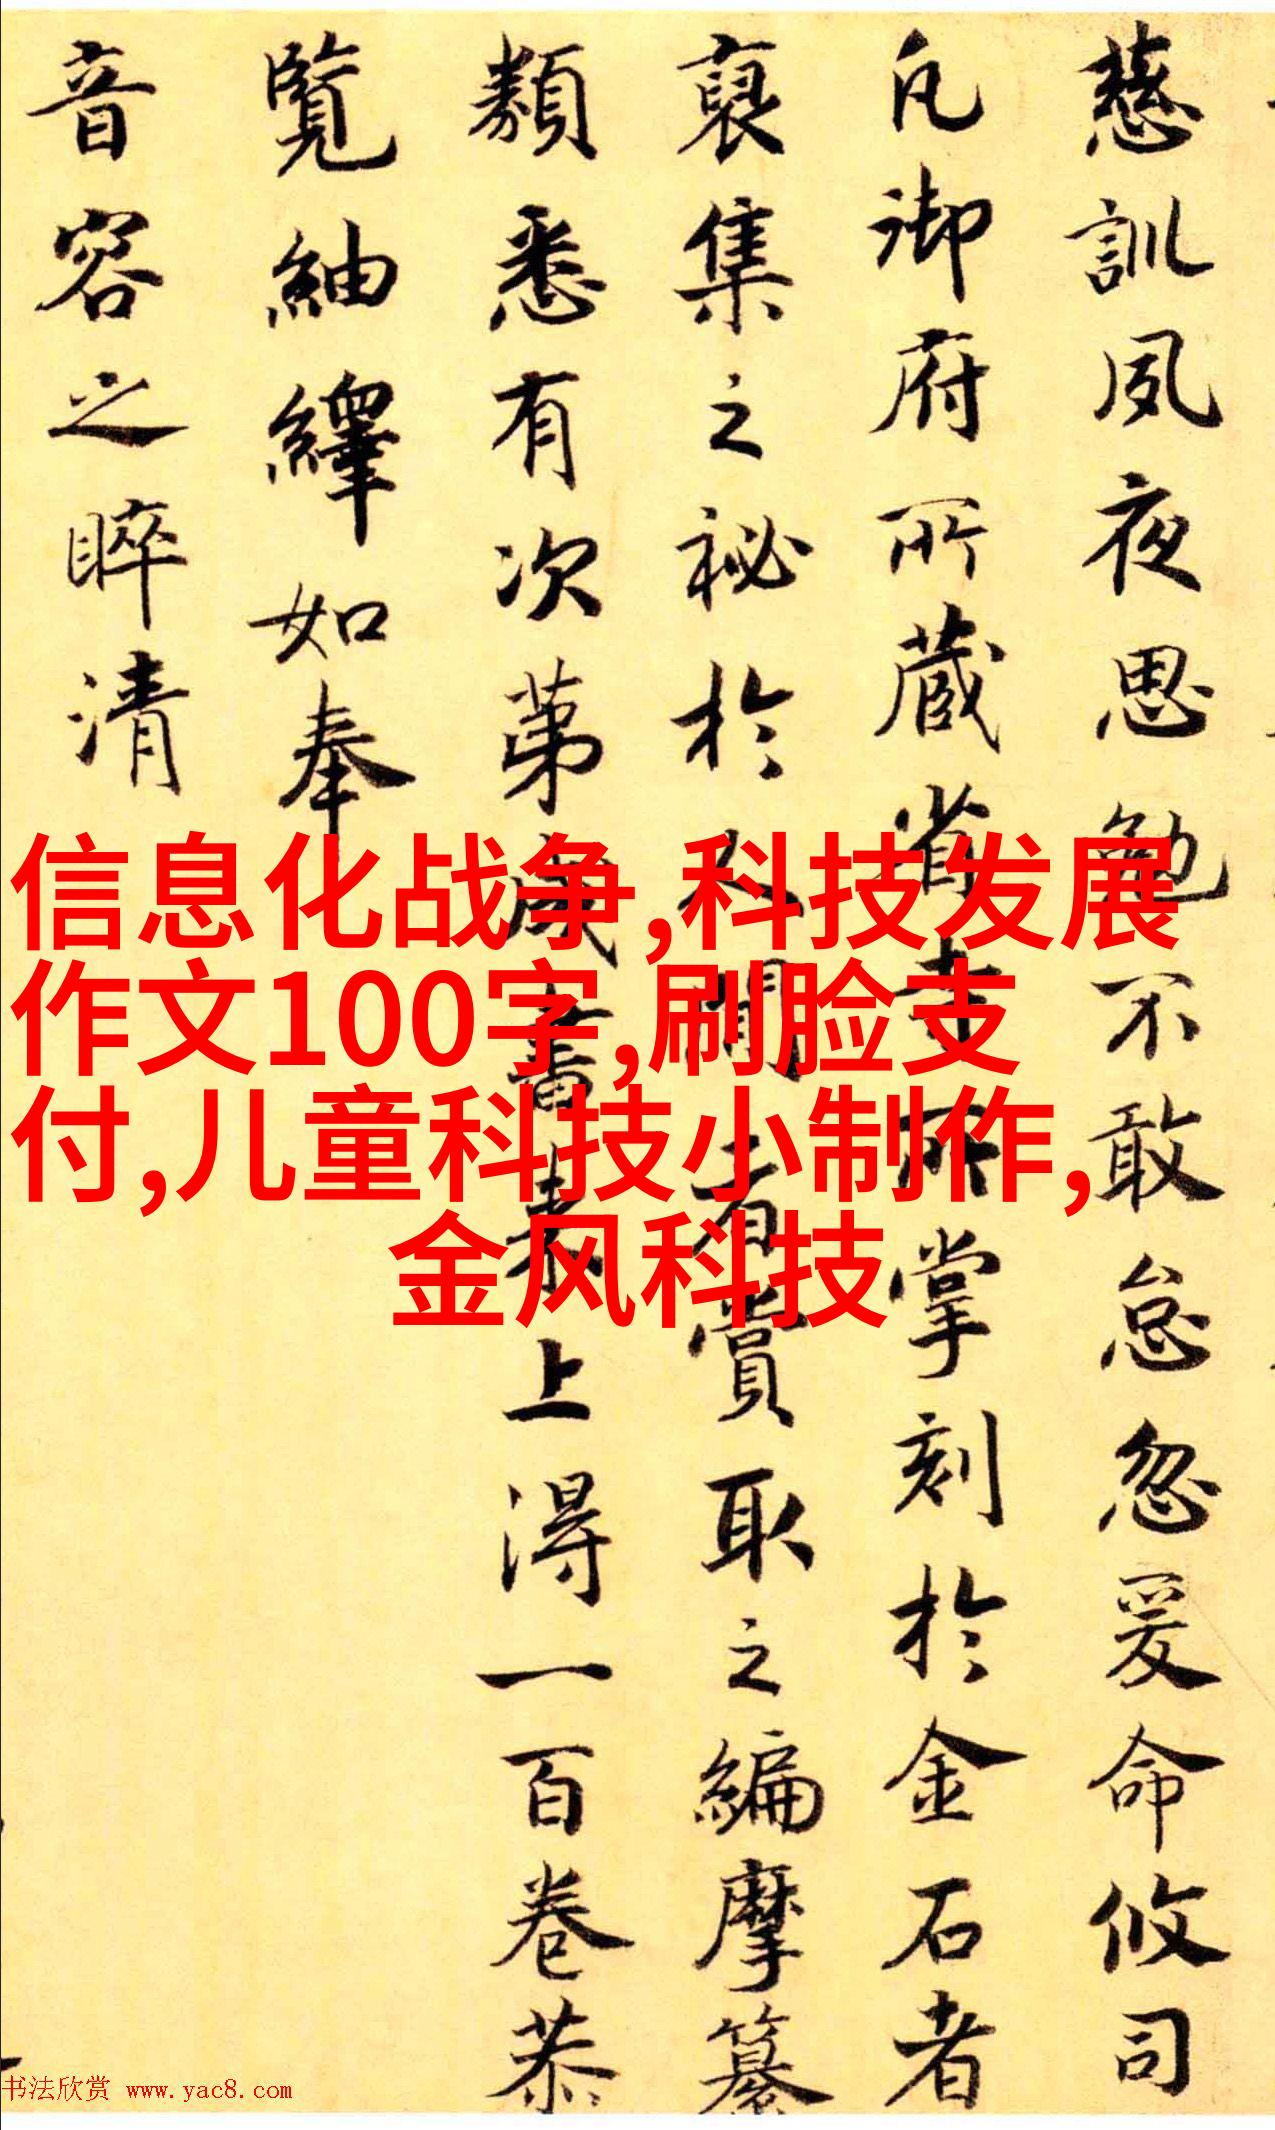 慈訓夙夜思勉不敢怠忽爰命攸司
凡御府所藏省寺所掌刻於金石者
裒集之祕於人間者賞取之編摩纂
類悉有次第成書來上得一百卷恭
覽紬繹如奉
音容之睟清
信息化战争,科技发展
作文100字,刷脸支
付,儿童科技小制作,
金风科技
书法欣赏 www.yac8.com